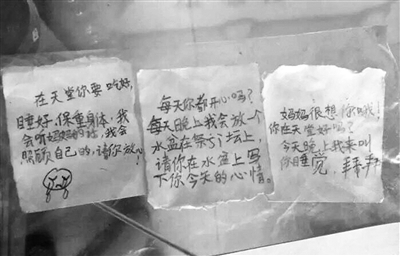 在天堂你要吃好,
睡好,保重身体,我
会听妈妈的话,我会
照顾自己的,请你放心!
每天你都开心吗?
每天晚上我会放一个
水盆在祭坛上,
请你在水盆上写
下你今天的心情。
妈妈很想你哦!
你在天堂好吗?
今天晚上我来叫
你睡觉,